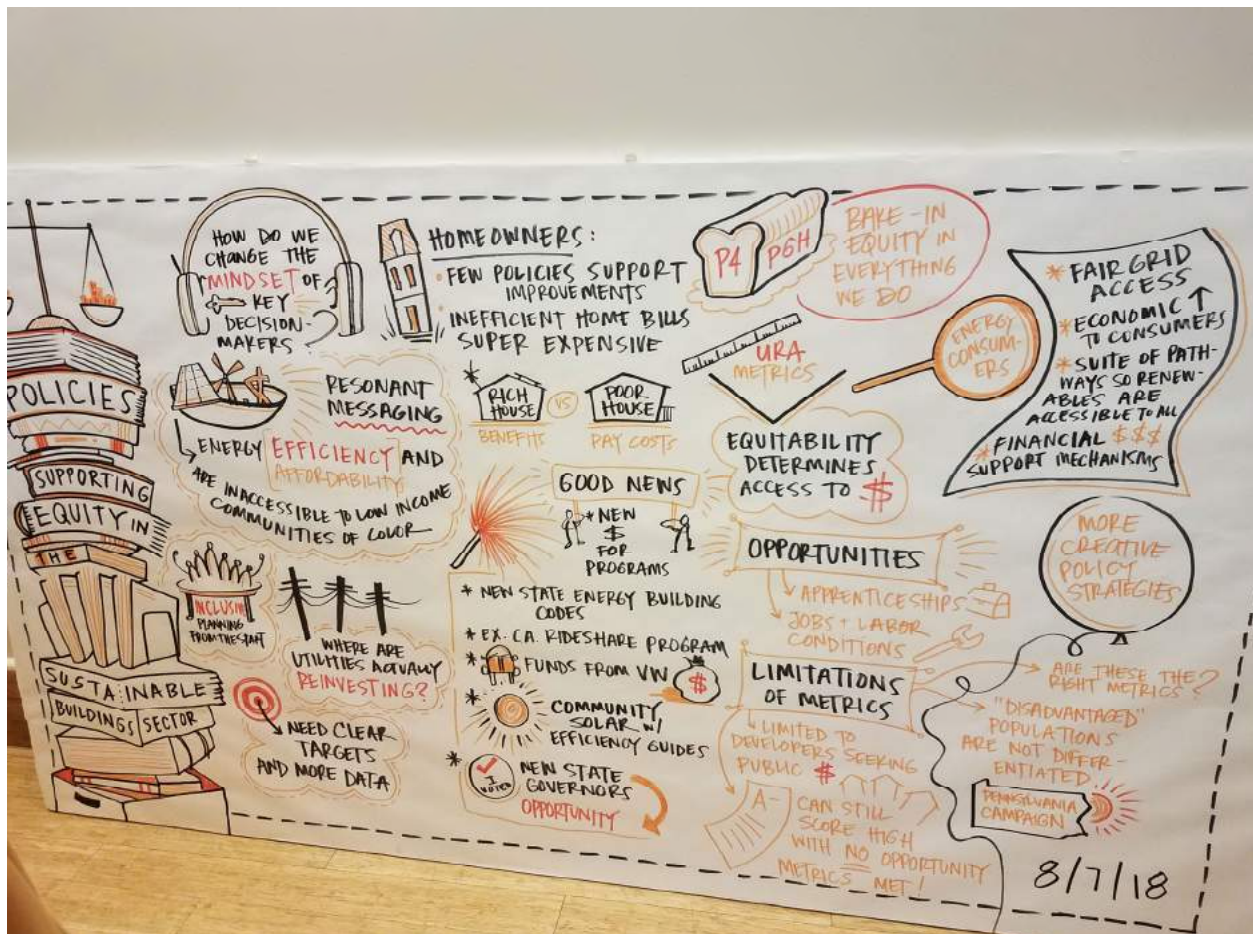 POLICIES
SUPPORTING
EQUITY IN
THE
SUSTAINABLE
BUILDINGS SECTOR
HOW DO WE
CHANGE THE
MINDSET OF
KEY
DECISION-
MAKERS?
RESONANT
MESSAGING
ENERGY EFFICIENCY AND
AFFORDABILITY
ARE INACCESSIBLE TO LOW INCOME
COMMUNITIES OF COLOR
INCLUSIVE
PLANNING
FROM THE START
WHERE ARE
UTILITIES ACTUALLY
REINVESTING?
NEED CLEAR
TARGETS
AND MORE DATA
HOMEOWNERS:
• FEW POLICIES SUPPORT
IMPROVEMENTS
• INEFFICIENT HOME BILLS
SUPER EXPENSIVE
RICH
HOUSE
VS
POOR
HOUSE
BENEFITS
PAY COSTS
GOOD NEWS
* NEW
$
FOR
PROGRAMS
* NEW STATE ENERGY BUILDING
CODES
* EX. CA. RIDESHARE PROGRAM
* FUNDS FROM VW
$
* COMMUNITY
SOLAR W/
EFFICIENCY GUIDES
* I
VOTED
NEW STATE
GOVERNORS
OPPORTUNITY
P4
P6H
BAKE-IN
EQUITY IN
EVERYTHING
WE DO
URA
METRICS
EQUITABILITY
DETERMINES
ACCESS TO $
OPPORTUNITIES
APPRENTICESHIPS
JOBS + LABOR
CONDITIONS
LIMITATIONS
OF METRICS
LIMITED TO
DEVELOPERS SEEKING
PUBLIC $
A-
CAN STILL
SCORE HIGH
WITH NO OPPORTUNITY
METRICS MET!
ARE THESE THE
RIGHT METRICS?
"DISADVANTAGED"
POPULATIONS
ARE NOT DIFFER-
ENTIATED
ENERGY
CONSUM-
ERS
* FAIR GRID
ACCESS
* ECONOMIC ↑
TO CONSUMERS
* SUITE OF PATH-
WAYS SO RENEW-
ABLES ARE
ACCESSIBLE TO ALL
* FINANCIAL $$$
SUPPORT MECHANISMS
MORE
CREATIVE
POLICY
STRATEGIES
PENNSYLVANIA
CAMPAIGN
8/7/18